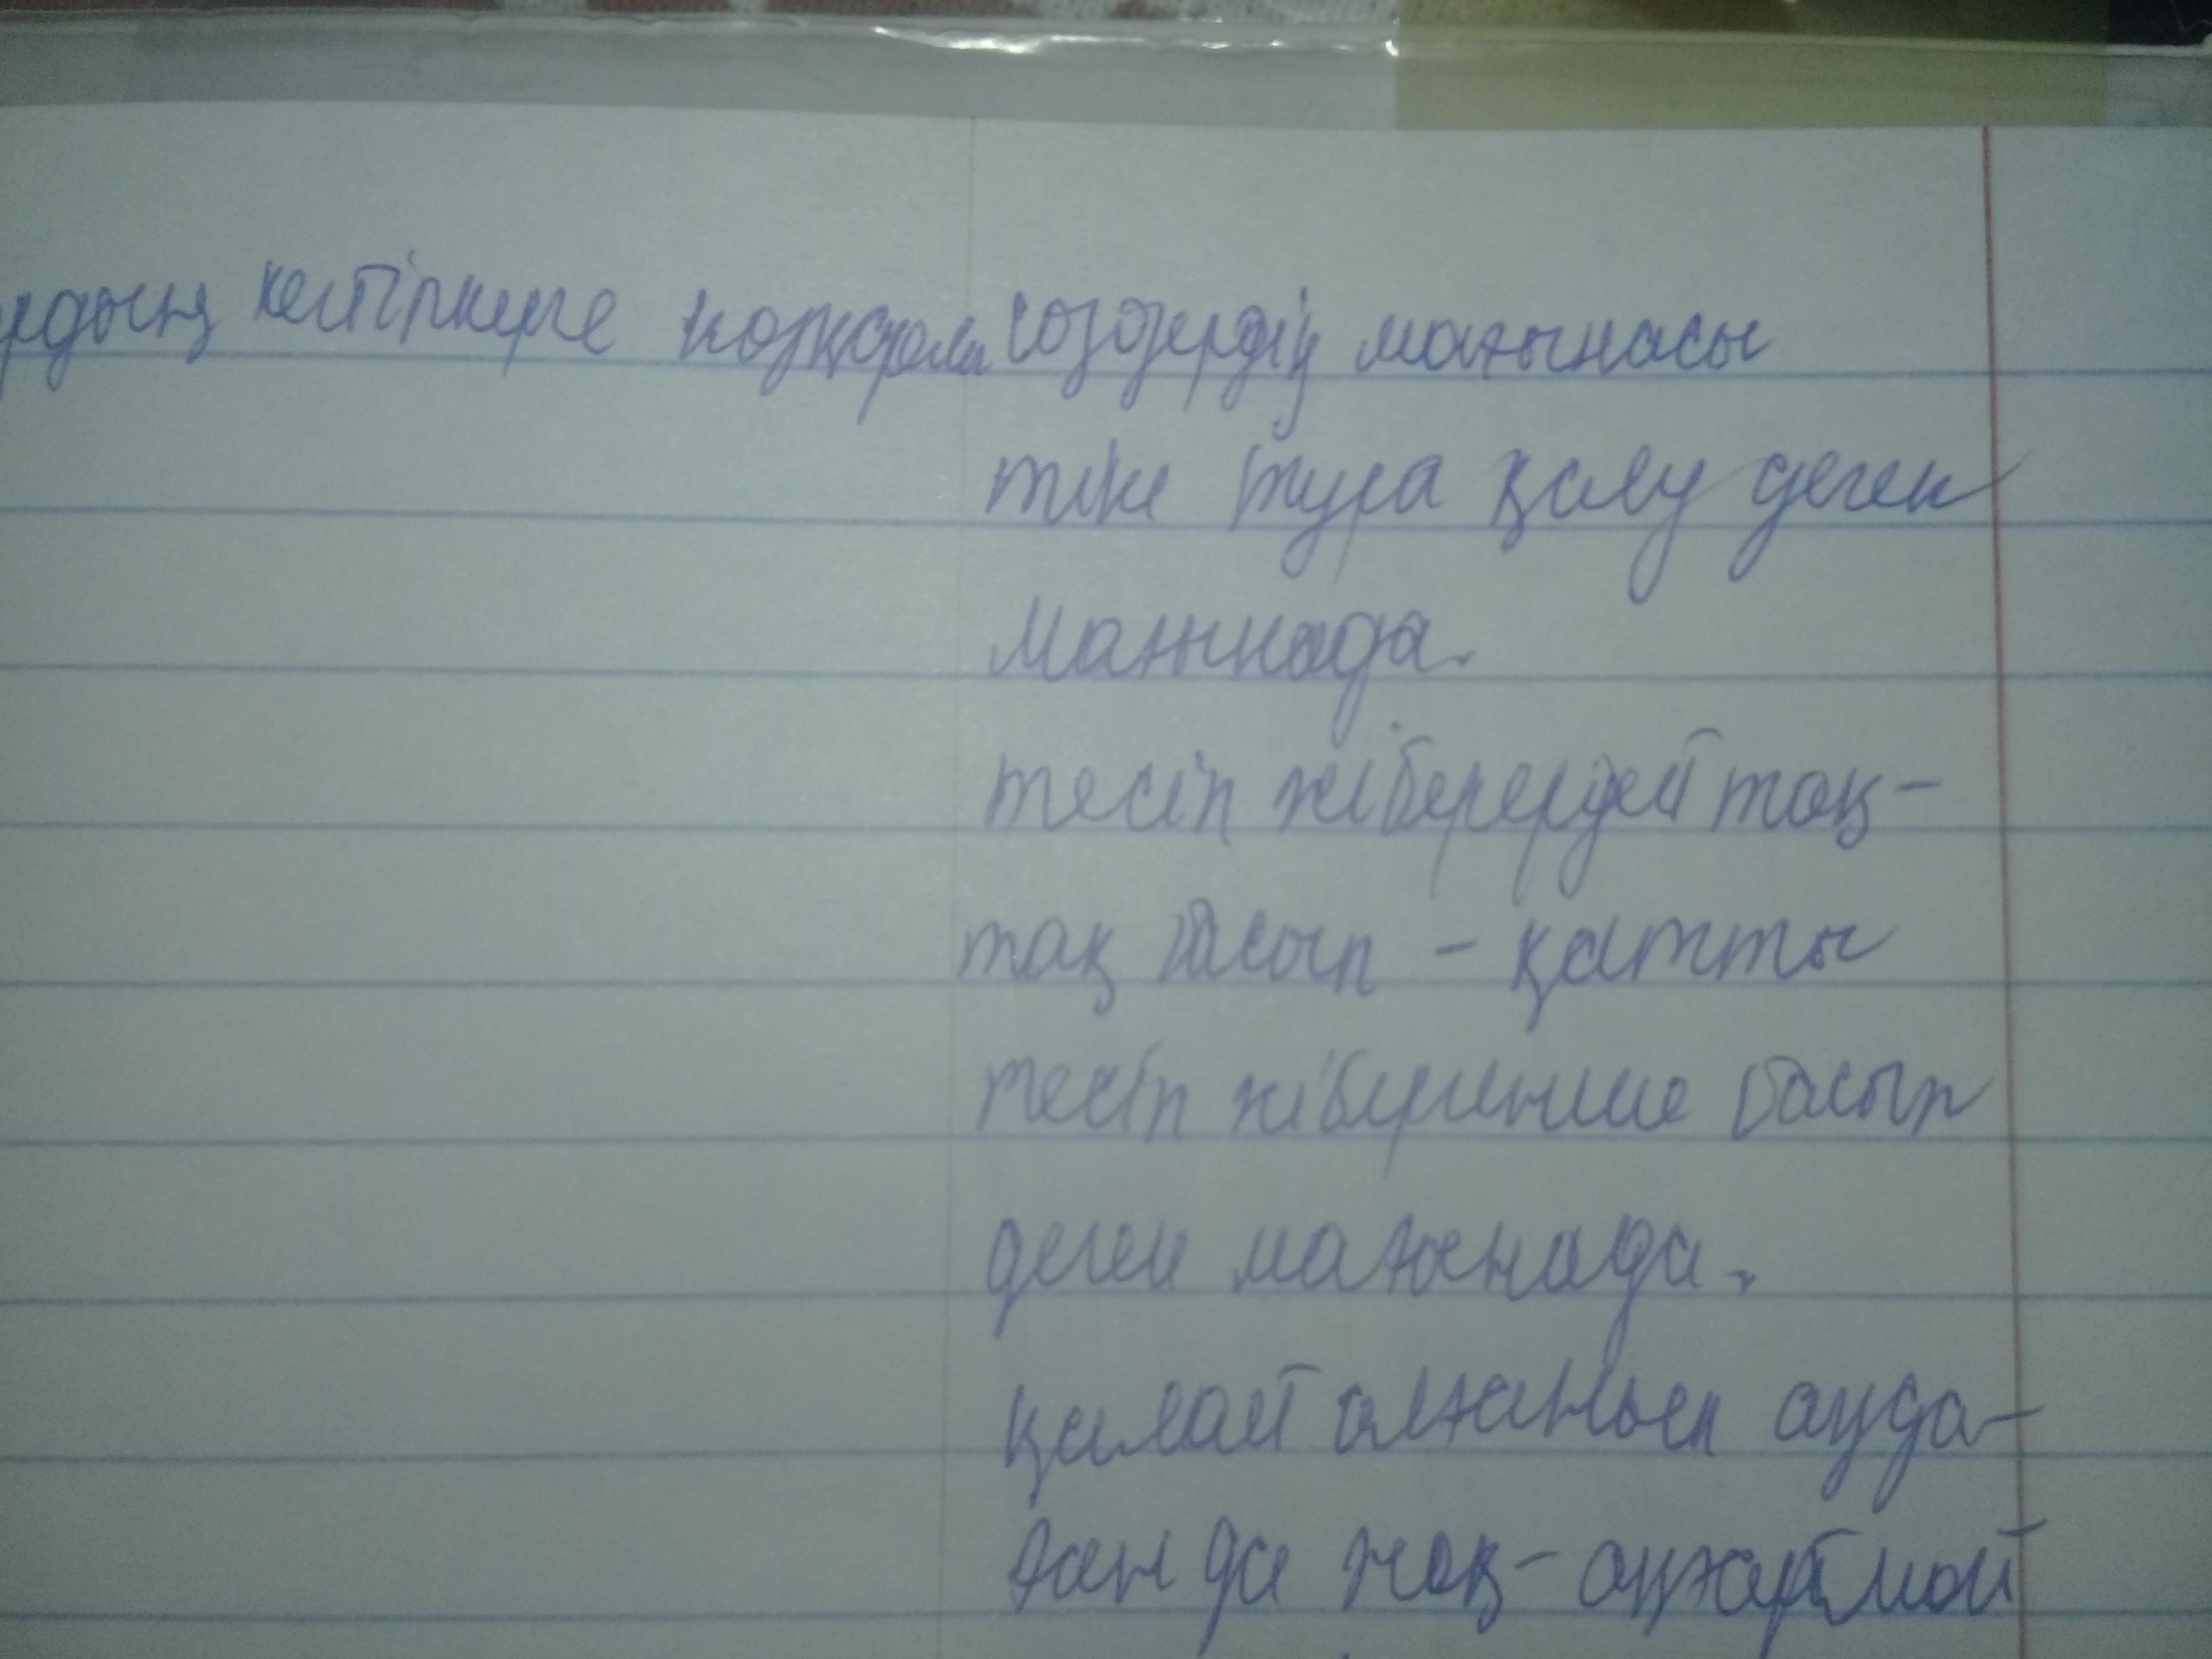 рдың кейіпкерге көзқарасы сөздердің мағынасы
тік тұра қалу деген
мағынада.
тесіп жіберердей тақ-
тақ басып - қатты
тесіп жібергенше басып
деген мағынада.
қалай алғанын аңда-
ған да жоқ - аңғармай